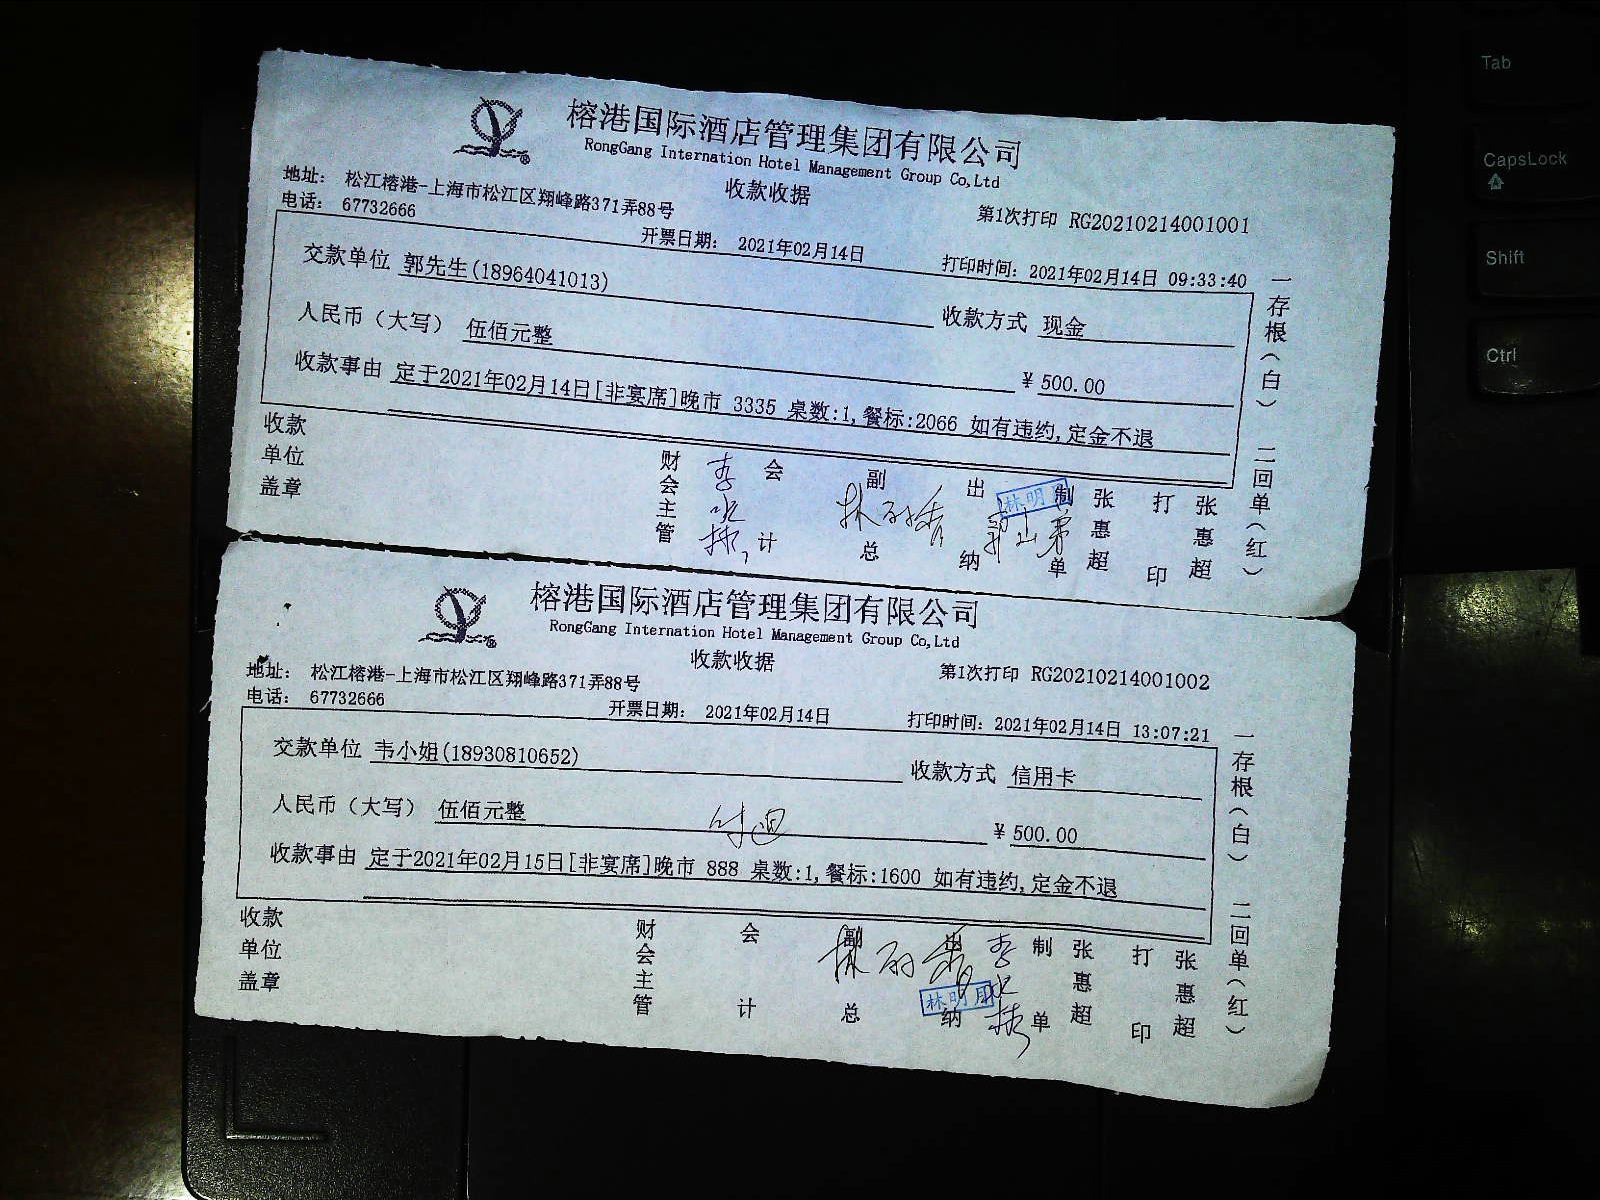 榕港国际酒店管理集团有限公司
RongGang Internation Hotel Management Group Co,Ltd
收款收据
地址： 松江榕港-上海市松江区翔峰路371弄88号
第1次打印 RG20210214001001
电话： 67732666
开票日期： 2021年02月14日
打印时间：2021年02月14日 09:33:40
交款单位 郭先生(18964041013)
收款方式 现金
人民币（大写） 伍佰元整
￥500.00
收款事由 定于2021年02月14日[非宴席]晚市 3335 桌数:1,餐标:2066 如有违约,定金不退
收款单位盖章
财会主管
会计
副总
出纳 林明月
制单 张惠超
打印 张惠超
一存根（白） 二回单（红）
榕港国际酒店管理集团有限公司
RongGang Internation Hotel Management Group Co,Ltd
收款收据
地址： 松江榕港-上海市松江区翔峰路371弄88号
第1次打印 RG20210214001002
电话： 67732666
开票日期： 2021年02月14日
打印时间：2021年02月14日 13:07:21
交款单位 韦小姐(18930810652)
收款方式 信用卡
人民币（大写） 伍佰元整
￥500.00
收款事由 定于2021年02月15日[非宴席]晚市 888 桌数:1,餐标:1600 如有违约,定金不退
收款单位盖章
财会主管
会计
副总
出纳 林明月
制单 张惠超
打印 张惠超
一存根（白） 二回单（红）
Tab
CapsLock
Shift
Ctrl